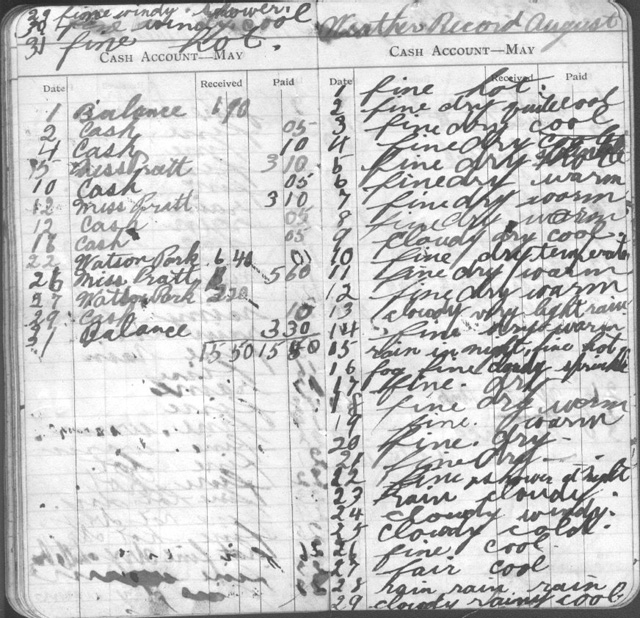 29 fine windy. shower.
30 fine windy cool
31 fine hot.
CASH ACCOUNT—MAY
Date Received Paid
1 Balance 1 90
2 Cash 05
4 Cash 10
5 Miss Pratt 3 10
10 Cash 05
12 Miss Pratt 3 10
12 Cash 05
18 Cash 05
22 Watson Pork 6 40
26 Miss Pratt 5 60
27 Watson Pork
29 Cash 10
31 Balance 3 30
15 50 15 50
Weather Record August
CASH ACCOUNT—MAY
Date Received Paid
1 fine hot.
2 fine dry quite cool
3 fine dry cool
4 fine dry
5 fine dry
6 fine dry warm
7 fine dry warm
8 fine dry warm
9 cloudy dry cool
10 fine dry temperate
11 fine dry warm
12 fine dry warm
13 cloudy very light rain
14 fine warm
15 rain in night, fine hot
16 fog fine cloudy sprinkle
17 fine. dry
18 fine dry warm
19 fine. warm
20 fine. dry.
21 fine dry.
22 fine shower at night
23 rain cloudy.
24 cloudy windy.
25 cloudy cold.
26 fine cool
27 fair cool
28 rain rain rain
29 cloudy rainy cool